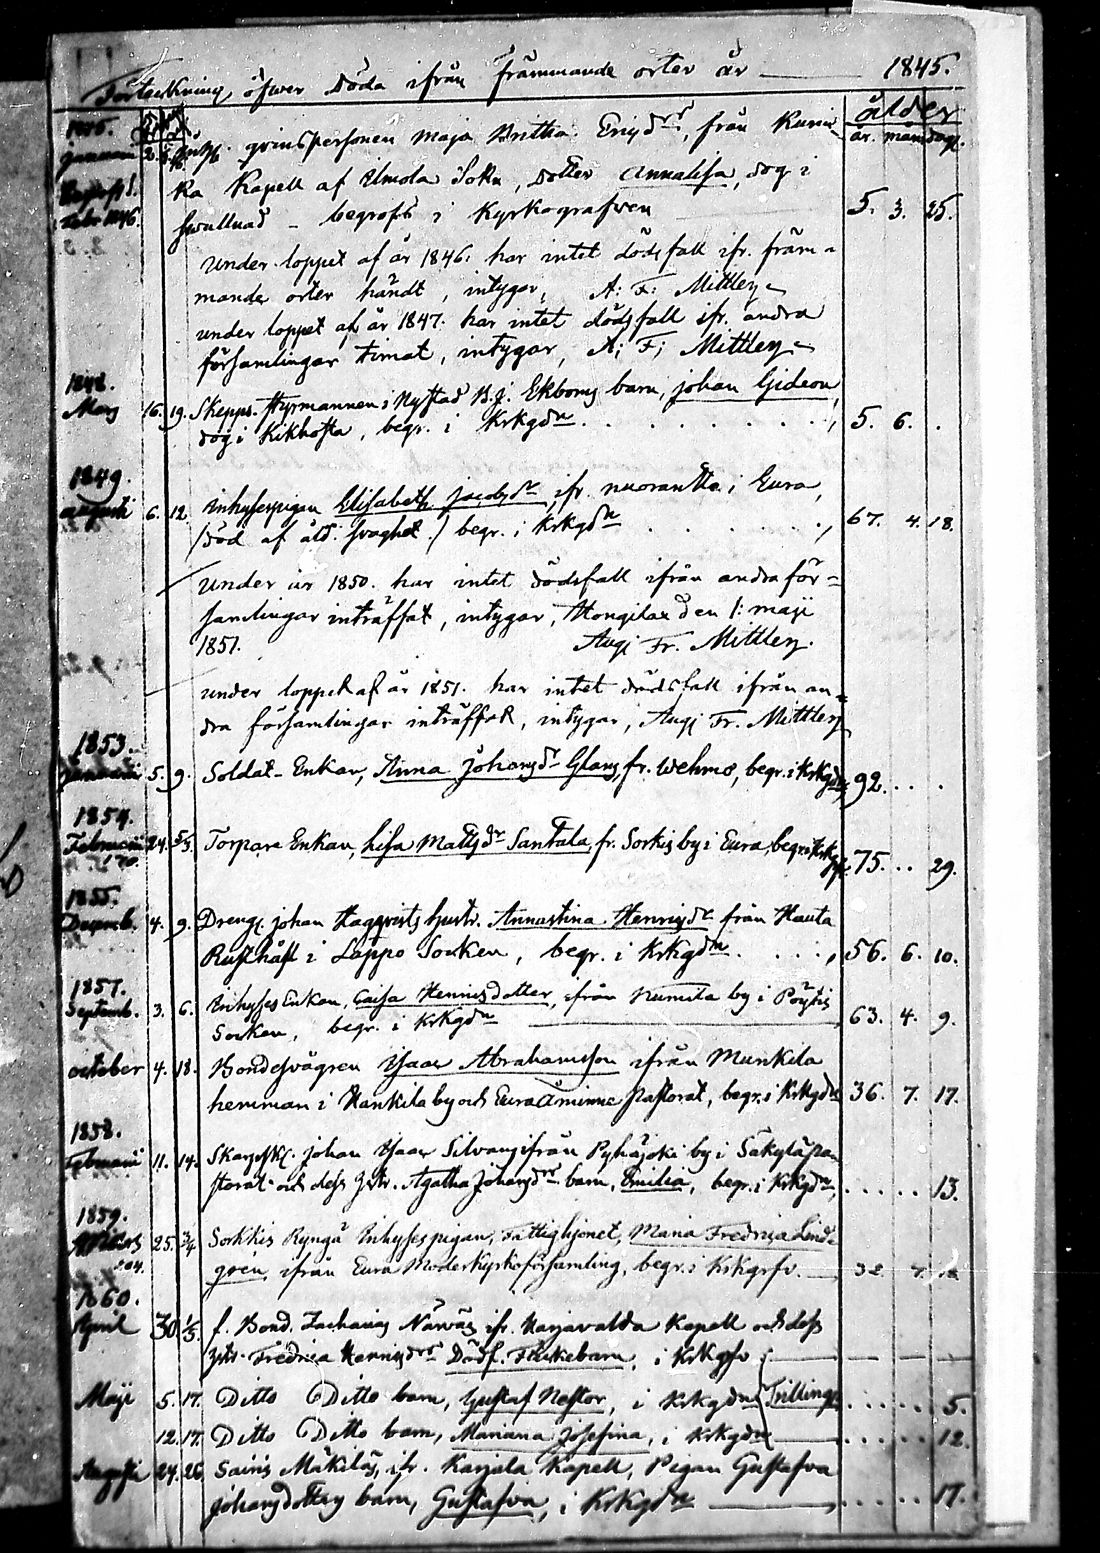 Förteckning öfwer Döda ifrån främmande orter år 1845.
ålder
år. mån. dag.
Januari 2. qvinspersonen Maja Britha Ericsdrs, från
ka Kapell af Ulmola Sokn, dotter Annalisa, dog i
Febr 1846. swullnad – begrofs i Kyrkografwen 5. 3. 25.
Under loppet af år 1846. har intet dödsfall ifr. främ=
mande orter händt, intygar, A: F: Mittler
under loppet af år 1847. har intet dödsfall ifr. andra
församlingar timat, intygar, A; F; Mittler
1848.
Mars 16. 19. Skepps-Styrmannen i Nystad B.J. Ekboms barn, Johan Gideon,
dog i Kikhosta, begr. i Krkgdn. 5. 6. .
1849.
Augusti 6. 12. Inhysespigan Elisabeth Jacobsdr, ifr. nuorantta i Eura,
/död af åld. svaghet./ begr. i Krkgdn 67. 4. 18.
Under år 1850. har intet dödsfall ifrån andra för=
samlingar inträffat, intygar, Hongilax den 1: maji
1851. Aug; Fr. Mittler.
under loppet af år 1851. har intet dödsfall ifrån an=
dra församlingar inträffat, intygar, Aug; Fr. Mittler
1853.
Januarii 5. 9. Soldat-Enkan, Anna Johansdr Glans, fr. Wehmo, begr. i Krkgdn, 92. . . .
1854.
Februarii 24. 5/3. Torpare Enkan, Lisa Mattsdr Santala, fr. Sorkis by i Eura, begr. i 75. . . 29.
1855.
Decemb. 4. 9. Drengs. Johan Haqqvists hustr. Annastina Henricsdr från Hauta
Rusthåll i Lappo Socken, begr. i Krkgdn. 56. 6. 10.
1857.
Septemb. 3. 6. InhysesEnkan, Caisa Henricsdotter, ifrån Numila by i Pöytis
Socken, begr. i Krkgdn 63. 4. 9.
october 4. 18. Bondesvågren Isaac Abrahamsson ifrån Munkila
hemman i Kankila by och Eura Åminne Pastorat, begr. i Krkgdn 36. 7. 17.
1858.
Februarii 11. 14. Johan Isaac Silvans ifrån Pyhäjoki by i Säkylä pa=
storat och dess hstr. Agatha Johansdrs barn, Emilia, begr. i Krkgdn, . . . . . 13.
1859.
25. 3/4 Sorkkis Ryngö Inhysespigan, Fattighjonet, Maria Fredrica Lind=
groén, ifrån Eura Moderkyrkoförsamling, begr. i Krkgrfv. 32. 7. 12.
1860.
April 30. 1/5. f. Bond. Zacharias Näwäs ifr. Harjavalda Kapell och dess
hstr. Fredrica Henricsdrs Dödf. Flickebarn, i Krkgfv
Maji 5. 17. Ditto Ditto barn, Gustaf Nestor, i Krkgdn Trillingar . . . . . 5.
12. 17. Ditto Ditto barn, Mariana Josefina, i Krkgdn . . . . . 12.
Augusti 24. 26. Sainis Mäkilä, ifr. Karjala Kapell, Pigan Gustafva
Johansdotters barn, Gustafva, i Krkgdn . . . . . 17.